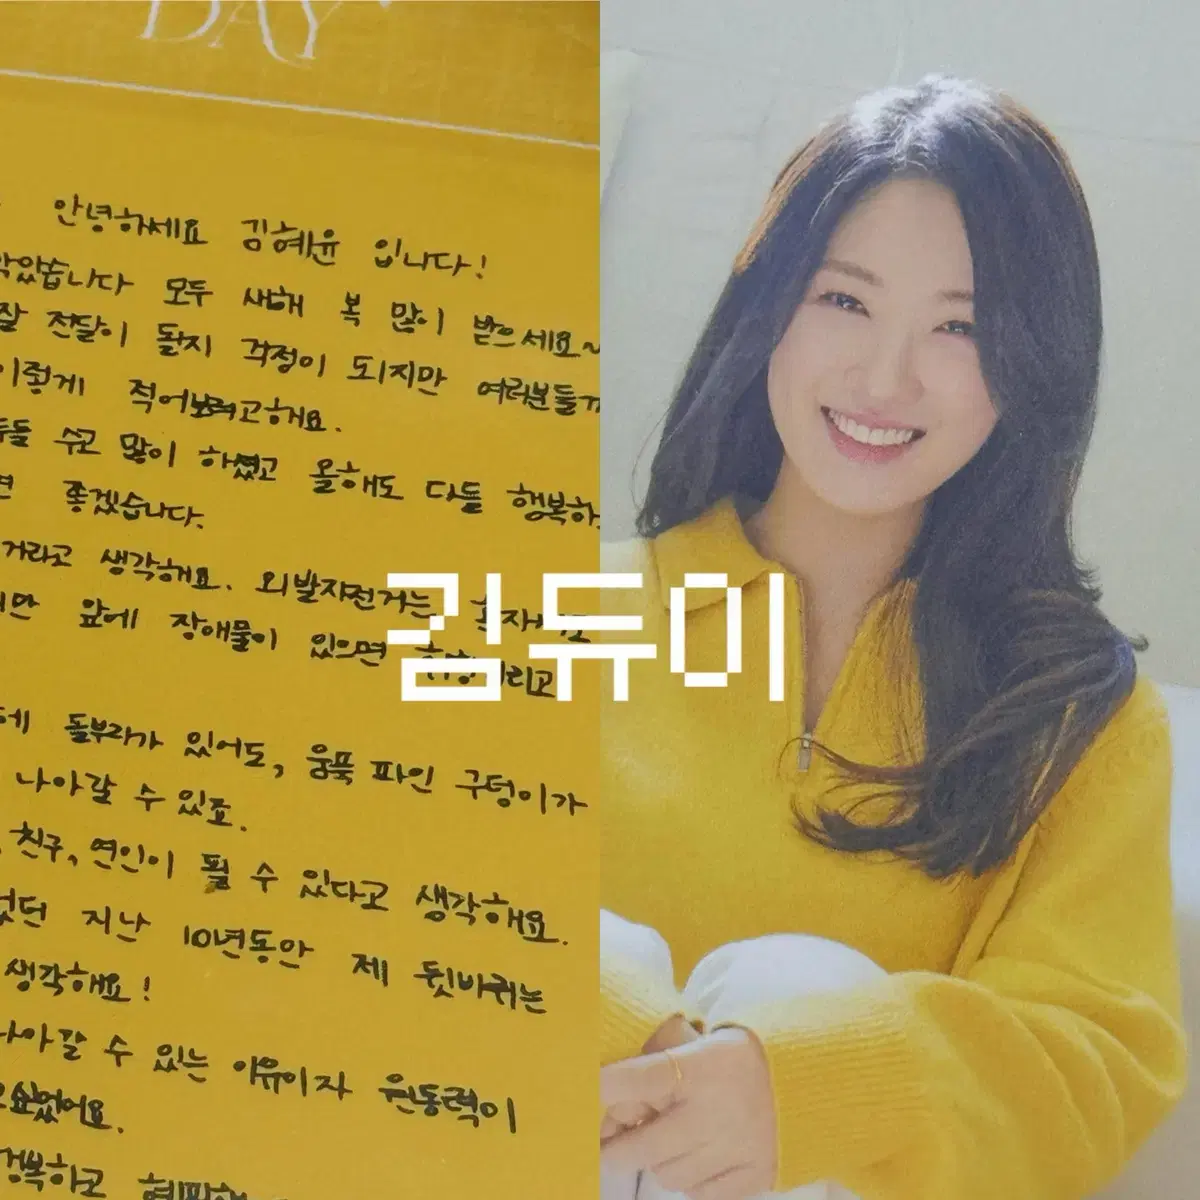 DAY
안녕하세요 김혜윤 입니다!
모두 새해 복 많이 받으세요~
잘 전달이 될지 걱정이 되지만 여러분들
이렇게 적어보려고해요.
수고 많이 하셨고 올해도 다들 행복하
좋겠습니다.
거라고 생각해요. 외발자전거는
앞에 장애물이 있으면
돌부리가 있어도, 움푹 파인 구덩이가
나아갈 수 있죠.
친구, 연인이 될 수 있다고 생각해요.
지난 10년동안 제 뒷바퀴는
생각해요!
나아갈 수 있는 이유이자 원동력이
행복하고
김듀이